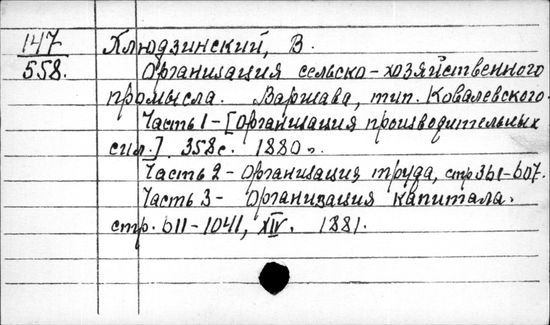 147
558.
Клюдзинский, В.
Организация сельско-хозяйственного
промысла. Варшава, тип. Ковалевского.
Часть 1 - [Организация производительных
сил.]. 358с. 1880г.
Часть 2 - Организация труда, стр 361-607.
Часть 3 - Организация капитала.
стр. 611-1041, XIV. 1881.